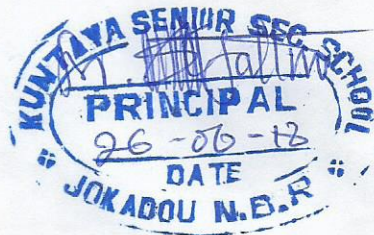 KUNTAYA SENIOR SEC. SCHOOL
PRINCIPAL
26-06-18
DATE
JOKADOU N.B.R